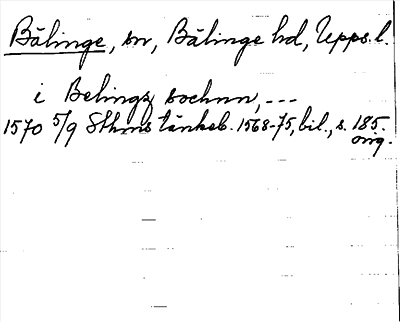 Bälinge, sn, Bälinge hd, Upps. l.
i Belingz sochnn, ---
1570 5/9 Sthms tänkeb. 1568-75, bil., s. 185.
orig.